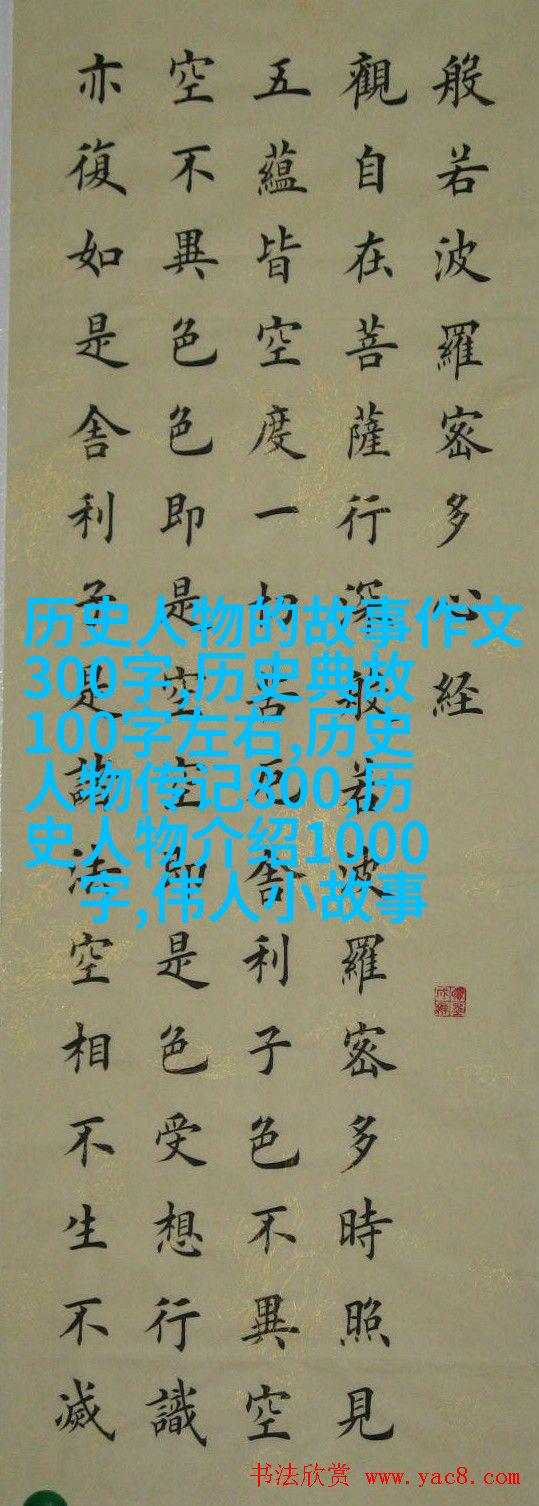 般若波羅密多心経
觀自在菩薩行深般若波羅密多時照見
五蘊皆空度一切苦厄舎利子色不異空
空不異色色即是空空即是色受想行識
亦復如是舎利子是諸法空相不生不滅
历史人物的故事作文
300字,历史典故
100字左右,历史
人物传记800,历
史人物介绍1000
字,伟人小故事
书法欣赏 www.yac8.com